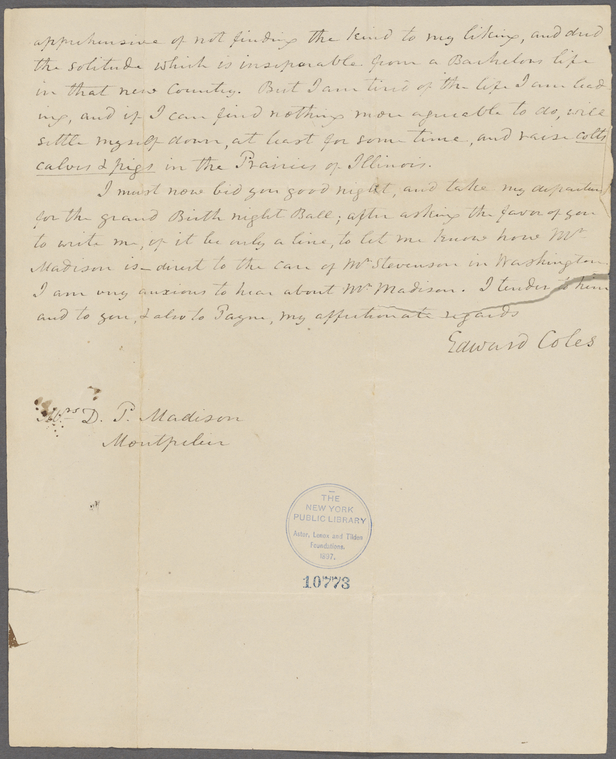 apprehensive of not finding the kind to my liking, and dred
the solitude which is inseparable from a Bachelors life
in that new Country. But I am tired of the life I am lead
ing, and if I can find nothing more agreeable to do, will
settle myself down, at least for some time, and raise colts
calves & pigs in the Prairies of Illinois.
I must now bid you good night, and take my departure
for the grand Birth night Ball; after asking the favor of you
to write me, if it be only a line, to let me know how Mr
Madison is—direct to the care of Mr Stevenson in Washington.
I am very anxious to hear about Mr Madison. I tender to him
and to you, & also to Payne, my affectionate regards
Edward Coles
Mrs D. P. Madison
Montpelier
THE
NEW YORK
PUBLIC LIBRARY
Astor, Lenox and Tilden
Foundations.
1897.
10773